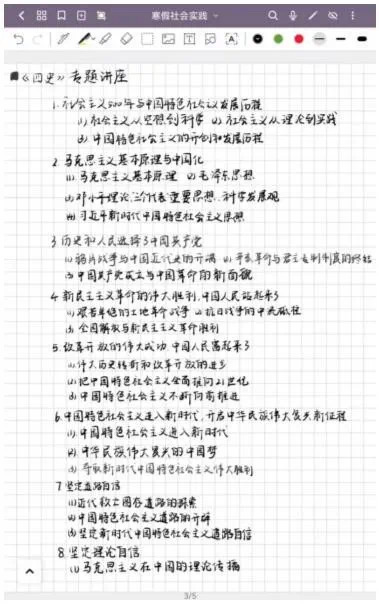 寒假社会实践
《四史》专题讲座
1.社会主义500年与中国特色社会主义发展历程
(1)社会主义从空想到科学 (2)社会主义从理论到实践
(3)中国特色社会主义的开创和发展历程
2.马克思主义基本原理与中国化
(1)马克思主义基本原理 (2)毛泽东思想
(3)邓小平理论、三个代表重要思想、科学发展观
(4)习近平新时代中国特色社会主义思想
3.历史和人民选择了中国共产党
(1)鸦片战争与中国近代史的开端 (2)辛亥革命与君主专制制度的终结
(3)中国共产党成立与中国革命的新面貌
4.新民主主义革命的伟大胜利,中国人民站起来了
(1)艰苦卓绝的土地革命战争 (2)抗日战争的中流砥柱
(3)全国解放与新民主主义革命胜利
5.改革开放的伟大成功 中国人民富起来了
(1)伟大历史转折和改革开放的进步
(2)把中国特色社会主义全面推向21世纪
(3)中国特色社会主义不断向前推进
6.中国特色社会主义进入新时代,开启中华民族伟大复兴新征程
(1)中国特色社会主义进入新时代
(2)中华民族伟大复兴的中国梦
(3)夺取新时代中国特色社会主义伟大胜利
7.坚定道路自信
(1)近代救亡图存道路的探索
(2)中国特色社会主义道路的开辟
(3)坚定新时代中国特色社会主义道路自信
8.坚定理论自信
(1)马克思主义在中国的理论传播
3/5